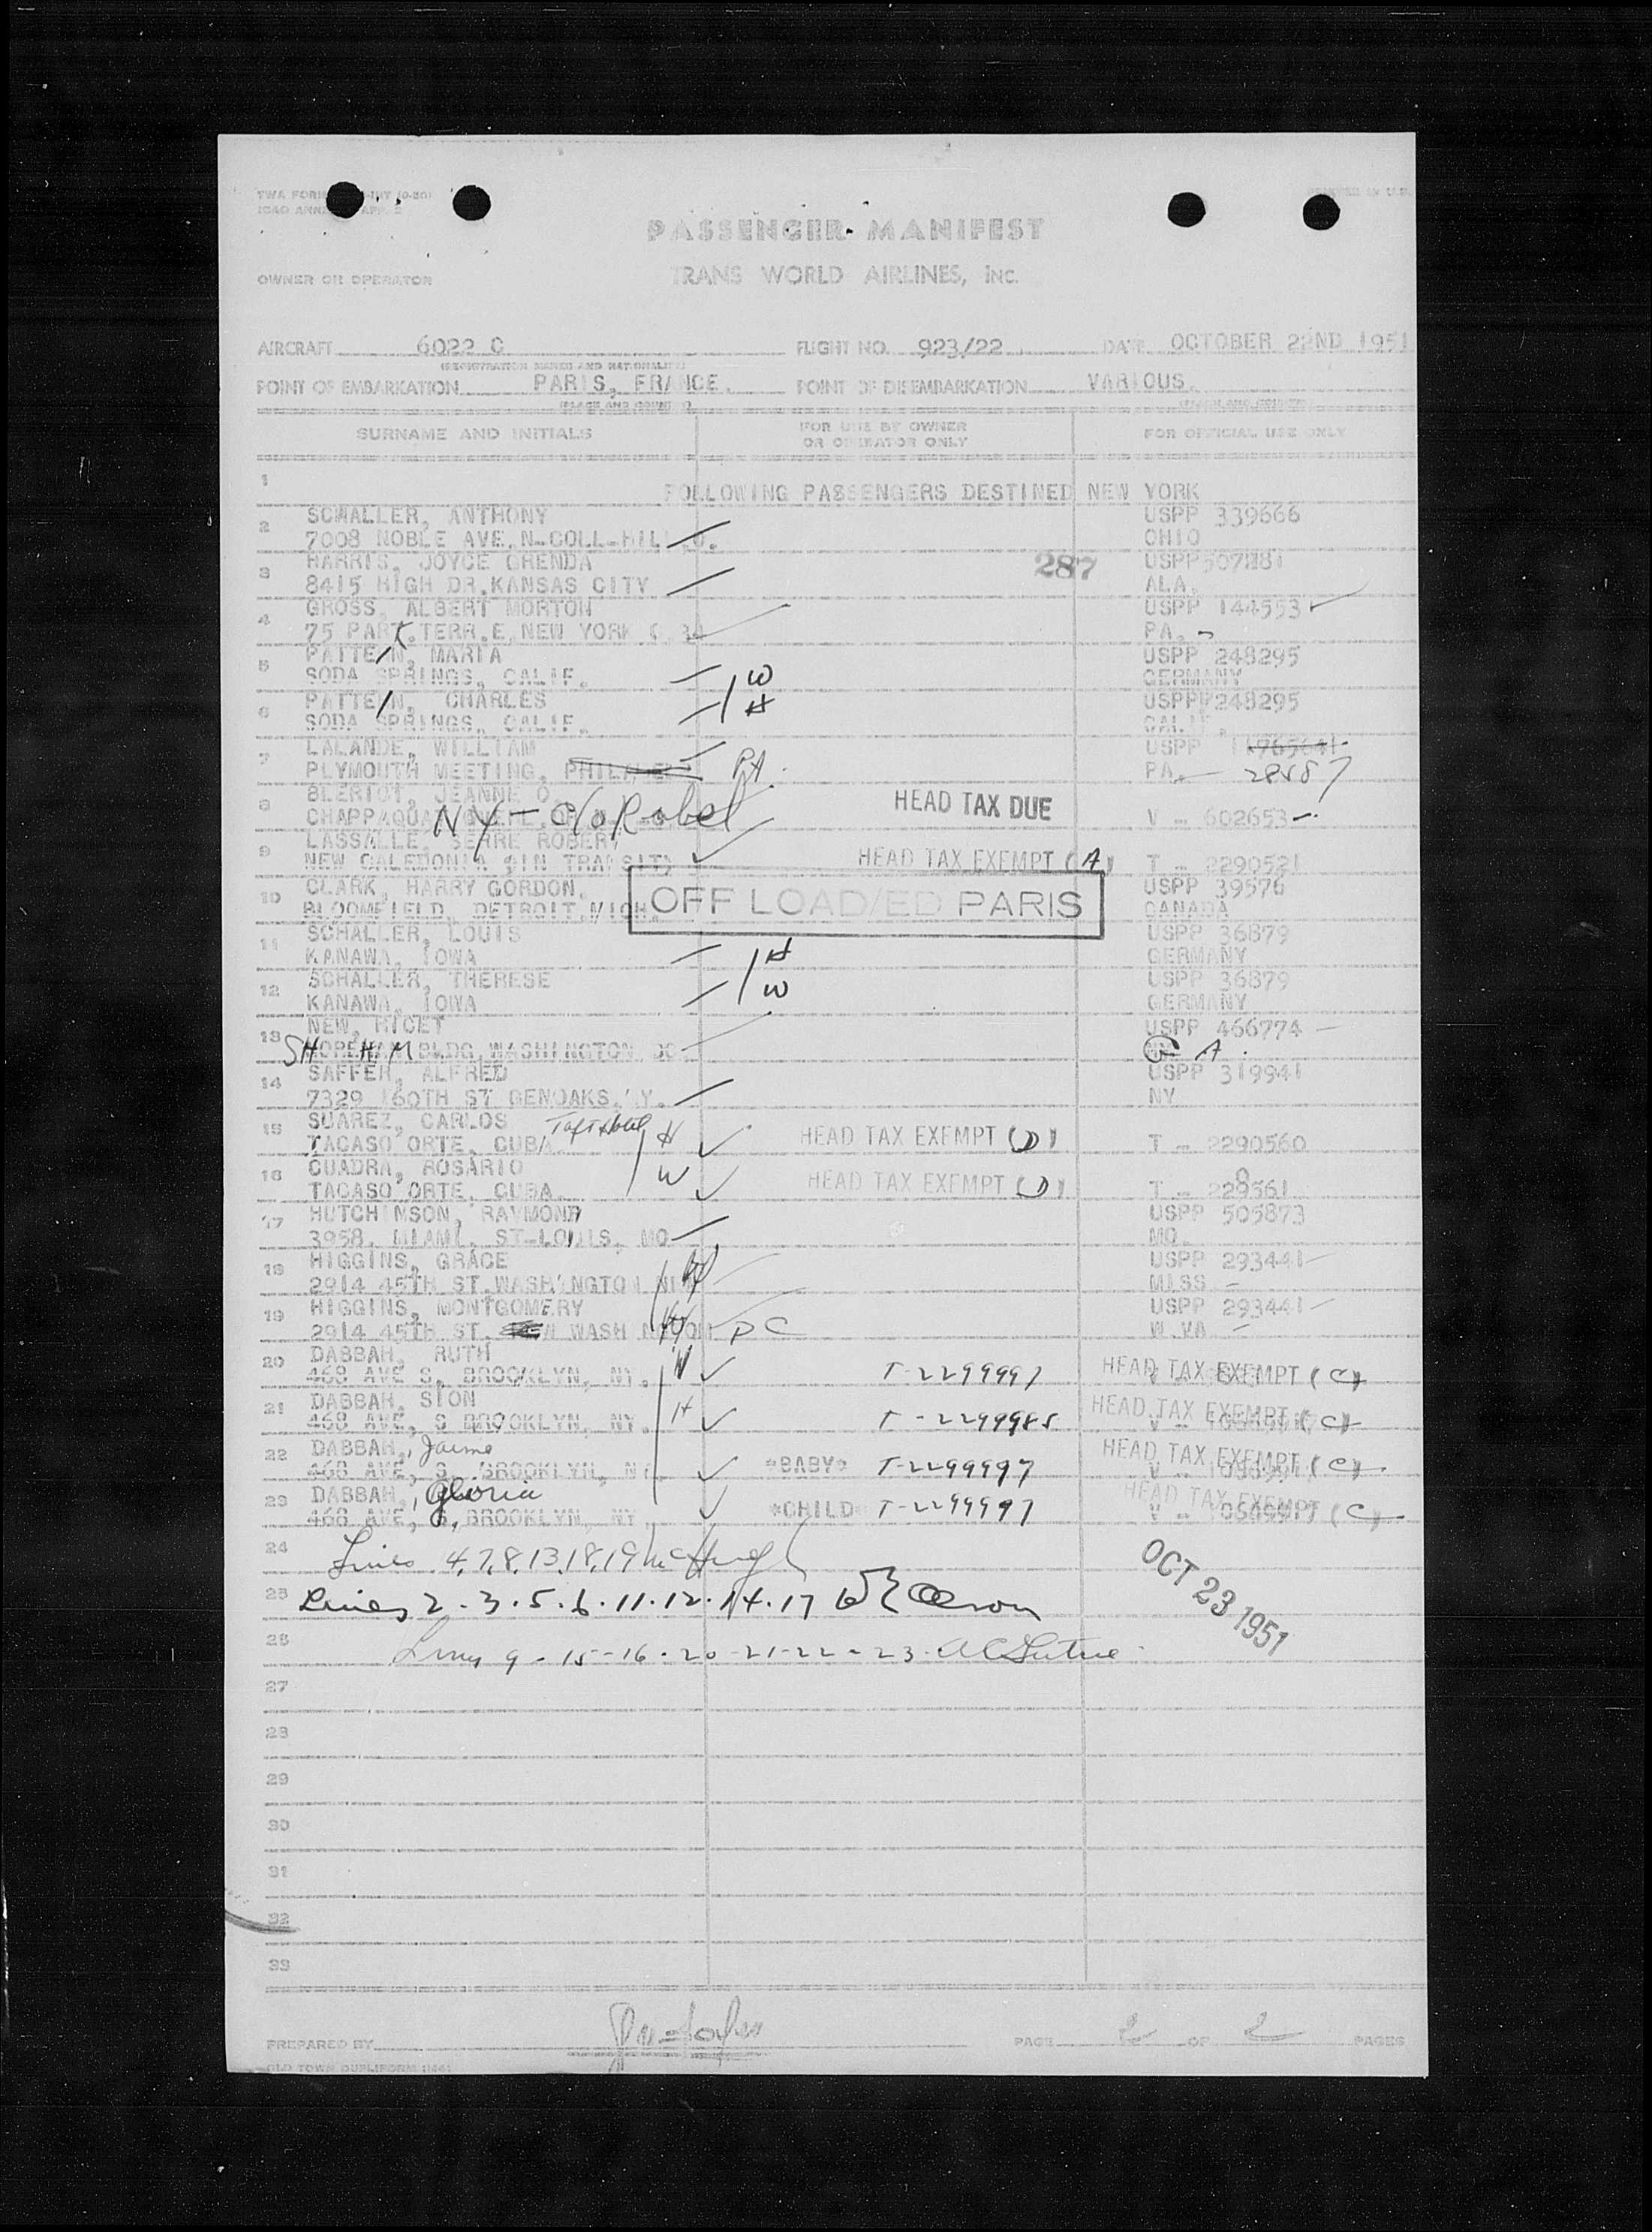 PASSENGER MANIFEST
TRANS WORLD AIRLINES, INC.
OWNER OR OPERATOR
AIRCRAFT 6022 C FLIGHT NO. 923/22 DATE OCTOBER 22ND 1951
(REGISTRATION MARKS AND NATIONALITY)
POINT OF EMBARKATION PARIS, FRANCE. POINT OF DISEMBARKATION VARIOUS.
(PLACE AND COUNTRY)
SURNAME AND INITIALS FOR USE BY OWNER OR OPERATOR ONLY FOR OFFICIAL USE ONLY
1 FOLLOWING PASSENGERS DESTINED NEW YORK
2 SCHALLER, ANTHONY USPP 339666
7008 NOBLE AVE. N-COLL-HILL O. OHIO
287
3 HARRIS, JOYCE GRENDA
8415 HIGH DR. KANSAS CITY ALA.
4 GROSS, ALBERT MORTON USPP 144553
75 PARK. TERR. E, NEW YORK PA.
5 PATTEN, MARIA USPP 248295
SODA SPRINGS, CALIF. W GERMANY
6 PATTEN, CHARLES USPP 248295
SODA SPRINGS, CALIF. H CALIF.
7 LALANDE, WILLIAM USPP
PLYMOUTH MEETING, PA. PA. 28587
8 BLERIOT, JEANNE O. HEAD TAX DUE
CHAPPAQUA NY - c/o Robel V - 602653
9 LASSALLE, SERRE ROBERT
NEW CALEDONIA (IN TRANSIT) HEAD TAX EXEMPT (A) T - 2290521
10 CLARK, HARRY GORDON. USPP 39576
BLOOMFIELD, DETROIT, MICH. OFF LOAD/ED PARIS CANADA
11 SCHALLER, LOUIS USPP 36879
KANAWA, IOWA H GERMANY
12 SCHALLER, THERESE USPP 36879
KANAWA, IOWA W GERMANY
13 NEW, RICET USPP 466774
SHOREHAM BLDG. WASHINGTON DC. GA.
14 SAFFER, ALFRED USPP 319941
7329 160TH ST GENOAKS. NY. NY
15 SUAREZ, CARLOS Taft Hotel
TACASO ORTE, CUBA. H HEAD TAX EXEMPT (D) T - 2290560
16 CUADRA, ROSARIO W HEAD TAX EXEMPT (D)
TACASO ORTE, CUBA. T - 2290561
17 HUTCHINSON, RAYMOND USPP 505873
3958, MIAMI, ST-LOUIS, MO MO.
18 HIGGINS, GRACE USPP 293441
2914 45TH ST. WASHINGTON MISS.
19 HIGGINS, MONTGOMERY USPP 293441
2914 45TH ST. WASHINGTON DC W.VA.
20 DABBAH, RUTH W
468 AVE S, BROOKLYN, NY. T-2299997 HEAD TAX EXEMPT (C)
21 DABBAH, SION H
468 AVE, S BROOKLYN, NY. T-2299985 HEAD TAX EXEMPT (C)
22 DABBAH, Jaime
468 AVE, S. BROOKLYN, NY. *BABY* T-2299997 HEAD TAX EXEMPT (C)
23 DABBAH, Gloria
468 AVE, S, BROOKLYN, NY *CHILD* T-2299997 HEAD TAX EXEMPT (C)
24 Lines 4,7,8,13,18,19
OCT 23 1951
25 Lines 2-3-5-6-11-12-14-17
26 Lines 9-15-16-20-21-22-23
27
28
29
30
31
32
33
PREPARED BY PAGE 2 OF 2 PAGES
OLD TOWN DUPLIFORM